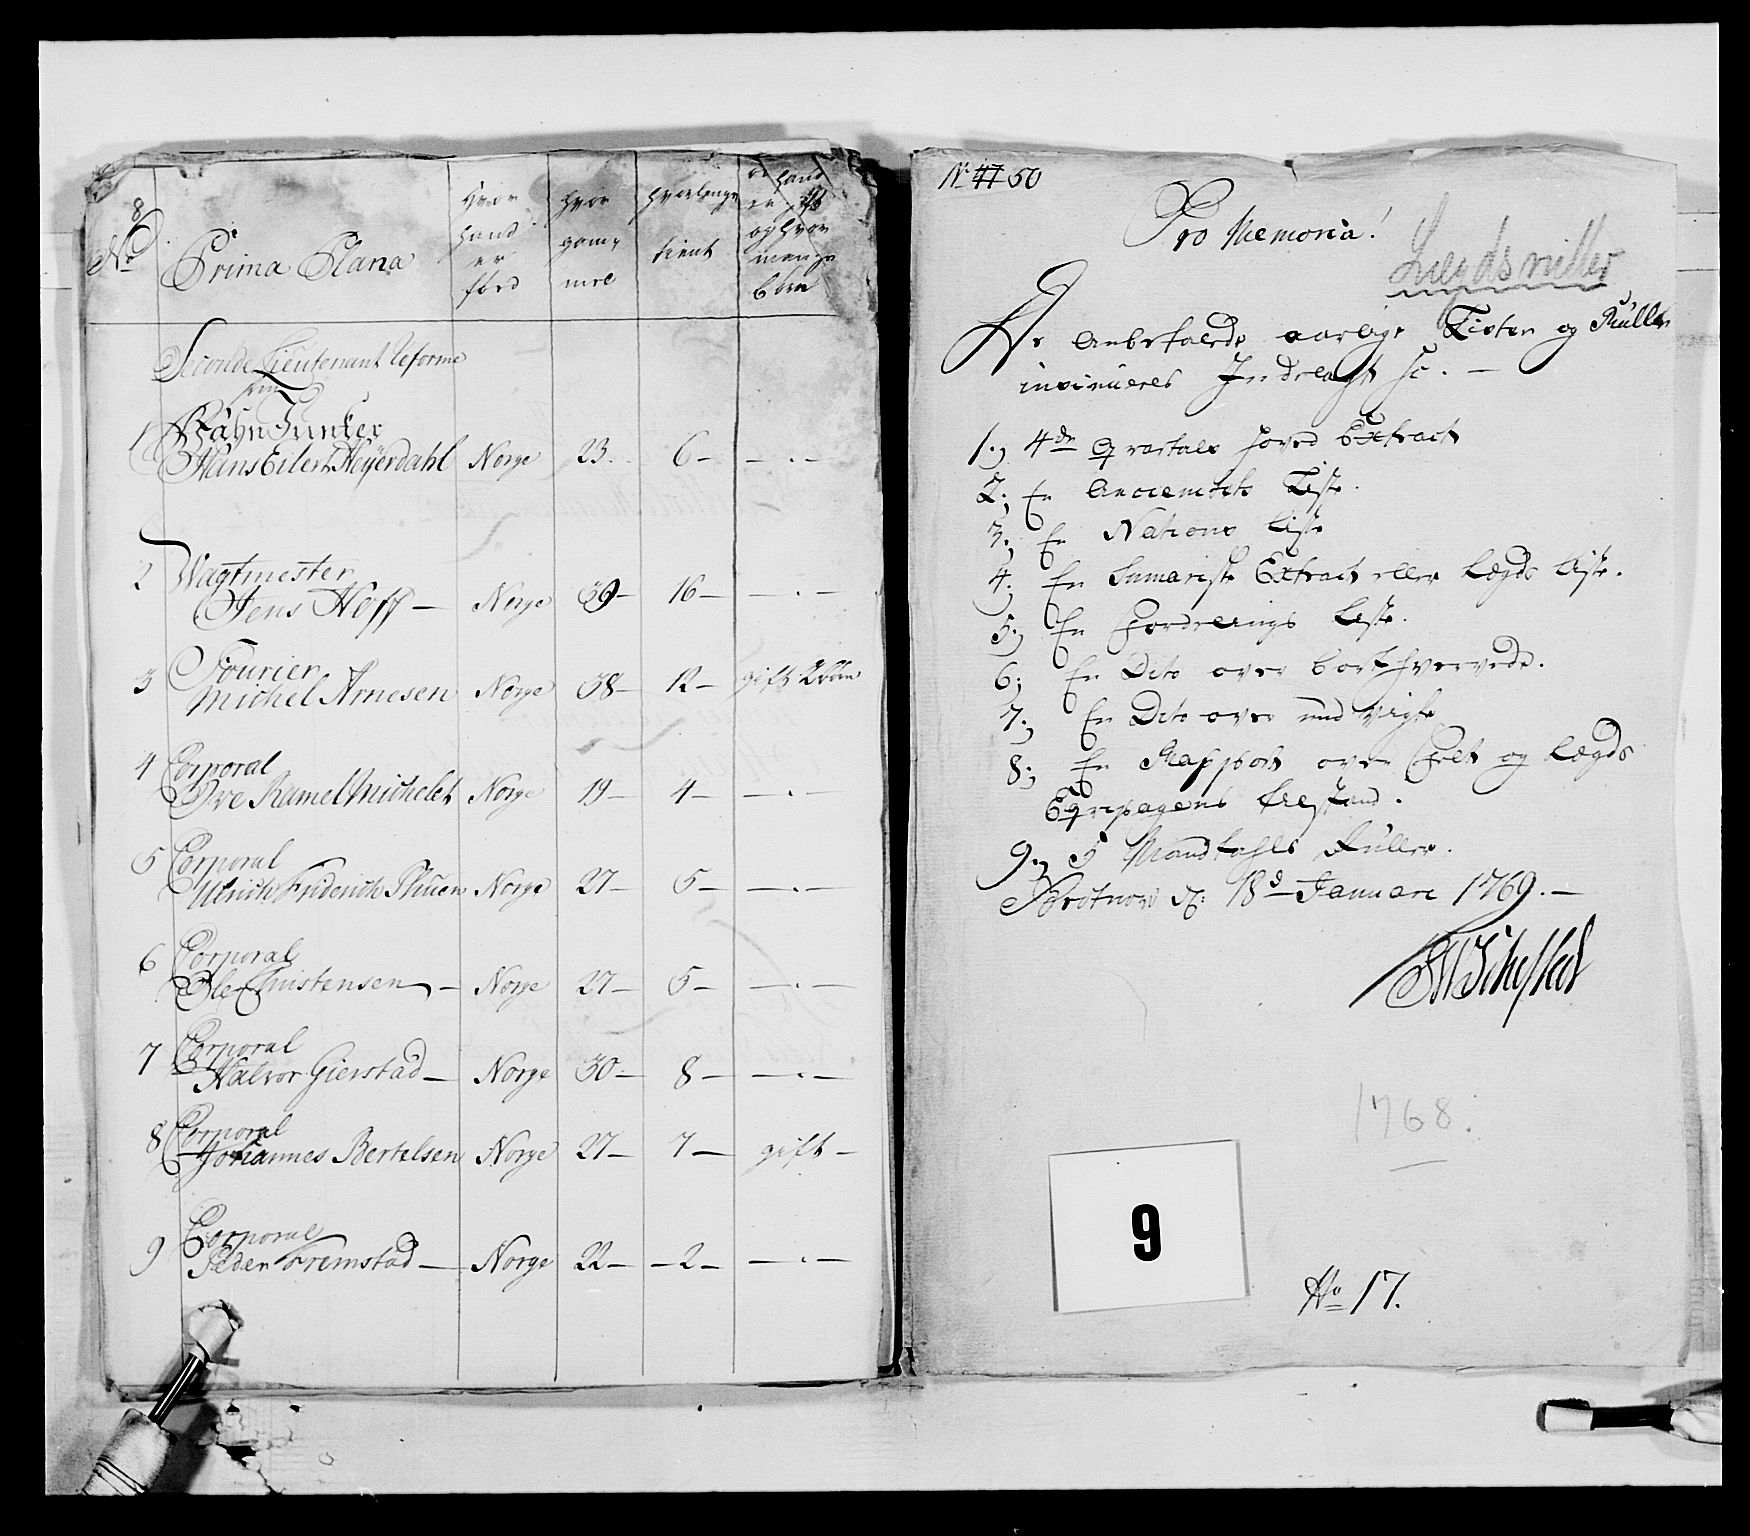 8
No
Prima Plana
Hvor hand er fød
hvor gam¬ mel
hvorlenge tient
om hand er gift og hvor mange børn
Seconde Lieutenant Reforme
Fahn Junker
1 Hans Eilert Heÿerdahl Norge 23. 6 — — . —
2 Wagtmester
Jens Hoff — Norge 39 — 16 — — . —
3 Fourier
Michel Arnesen Norge 38 — 12 — gift 2 børn
4 Corporal
Ove Ramel Michelet Norge 19 — 4 — — . —
5 Corporal
Ulrich Friderich Thuen Norge 27 — 5 — — . —
6 Corporal
Ole Christensen — Norge 27 — 5 — — . —
7 Corporal
Halvor Gierstad — Norge 30 — 8 — — . —
8 Corporal
Johannes Bertelsen Norge 27 — 7 — gift —
9 Corporal
Peder Fremstad — Norge 22 — — 2 — — . —
No 47 50
Pro Memoria!
Lægdsruller
De Anbefalede aarlige Lister og Ruller
Indlagt
1.) 4de Qvartals Hoved Extract
2.) En Anciennitets Liste.
3.) En Nations Liste
4.) En Sumarisk Extract eller Lægds Liste.
5.) En Fordelings Liste.
6.) En Dito over bort hvervede.
7.) En Dito over und vigte
8.) En Rapport over Felt og Lægds
Eqvipagens tilstand.
9.) 5 Mandtahls Ruller.
d: 18d Januari 1769. —
1768.
9
No 17.